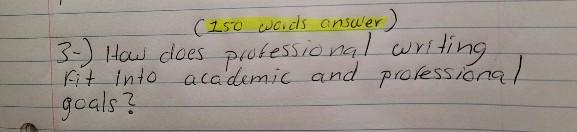 (150 words answer)
3-) How does professional writing
Fit Into academic and professional
goals?